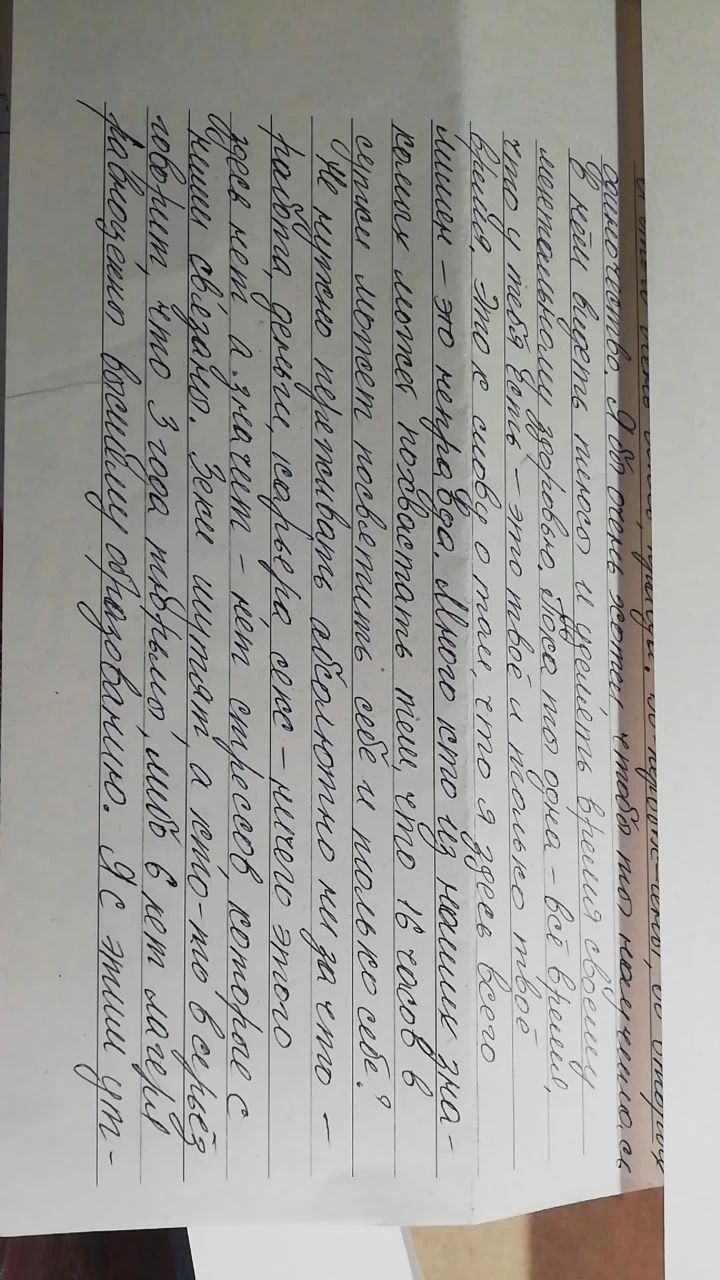 одиночество. Я бы очень хотел, чтобы ты научилась
в нём видеть плюсы и уделять время своему
ментальному здоровью. Пока ты одна – всё время,
что у тебя есть – это твоё и только твоё
время. Это к слову о том, что я здесь всего
лишен – это неправда. Много кто из наших зна-
комых может похвастать тем, что 16 часов в
сутки может посвятить себе и только себе?
Не нужно переживать абсолютно ни за что –
работа, деньги, карьера, секс – ничего этого
здесь нет а значит – нет стрессов, которые с
ними связаны. Зеки шутят а кто-то всерьёз
говорит, что 3 года тюрьмы, либо 6 лет лагеря
равноценно высшему образованию. Я с этим ут-